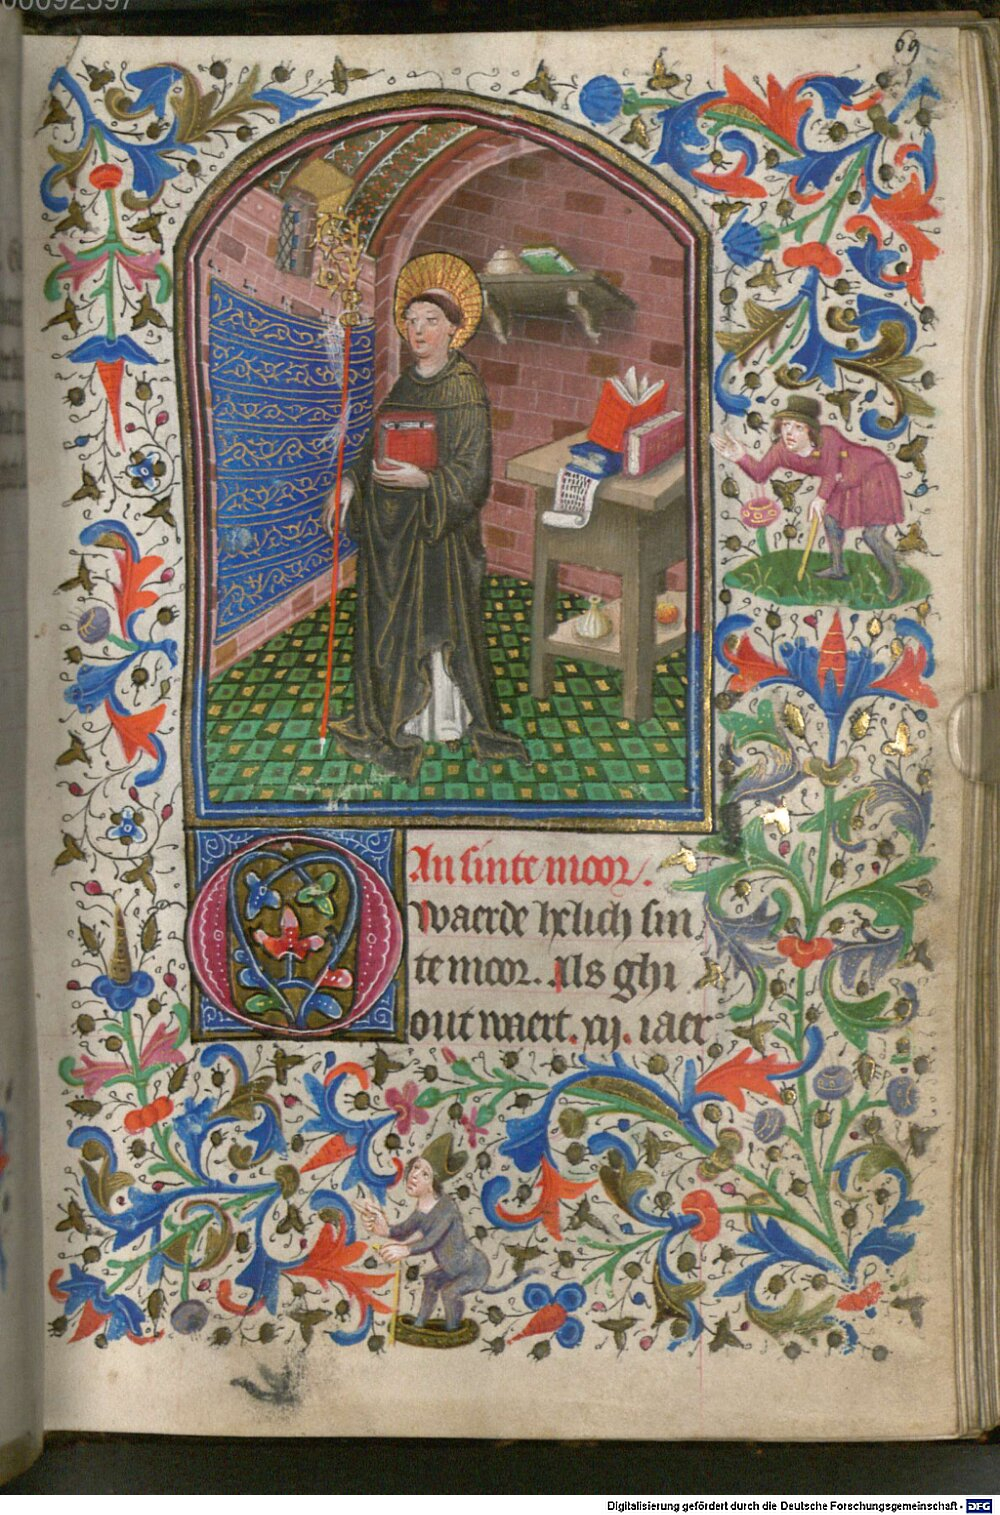 00092397
69
An sinte moor.
O waerde hėlich sin
te moor. Als ghi
out waert. xij. iaer
Digitalisierung gefördert durch die Deutsche Forschungsgemeinschaft - DFG